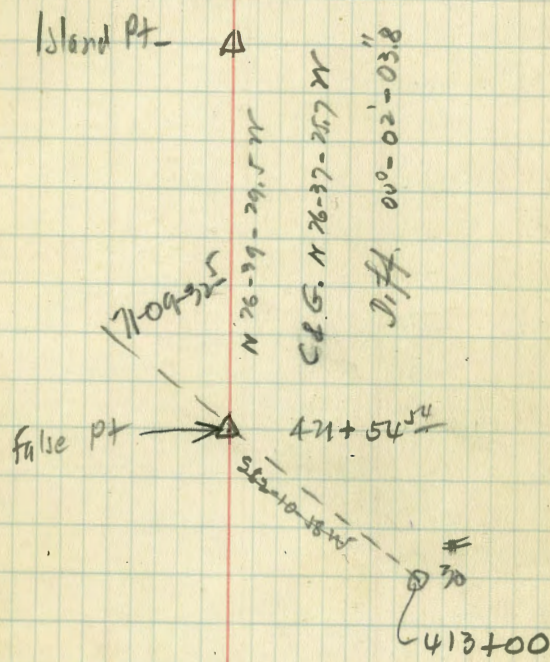 Island Pt_
N 76-39-29.5 W
C&G. N 76-37-25.7 W
Diff. 00°-02'-03.8"
71-09-32.5
False Pt
421+54 54
# 30
413+00